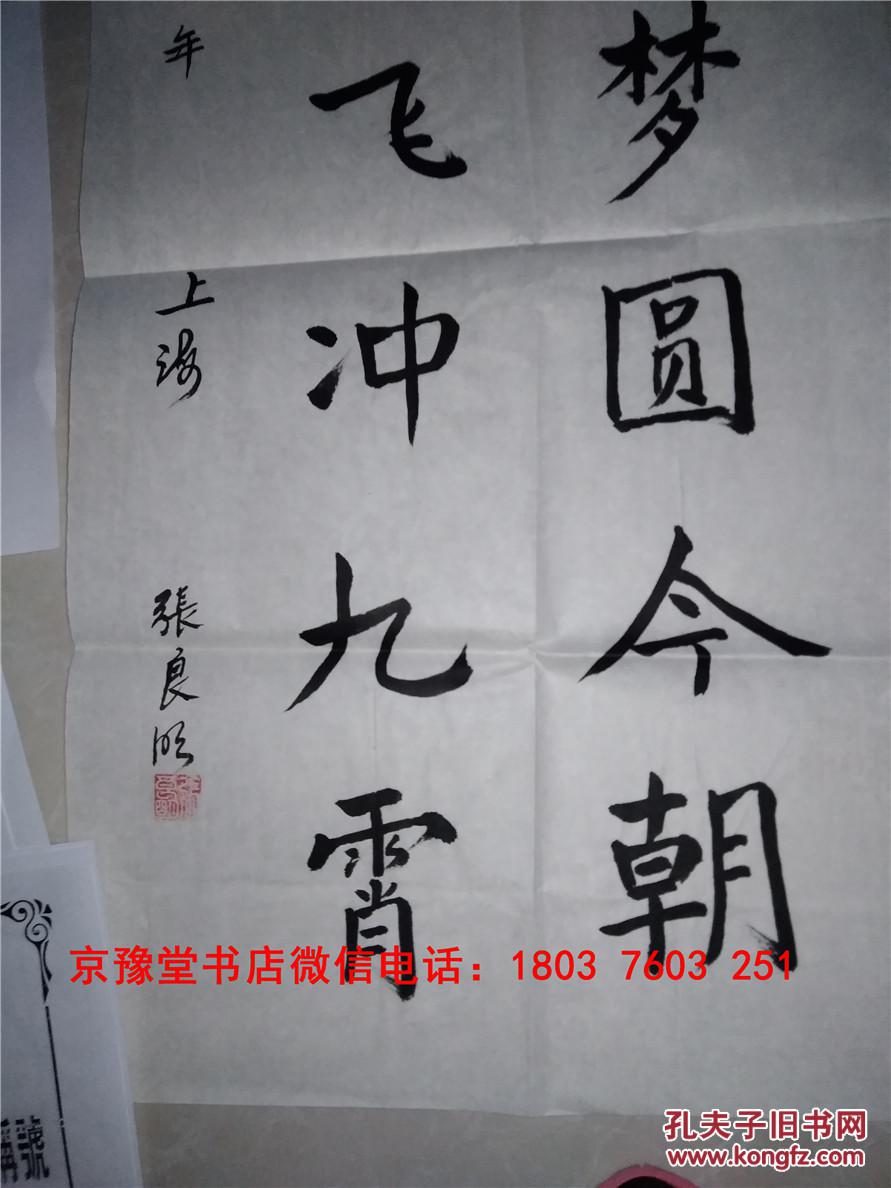 梦圆今朝
飞冲九霄
年 上海 张良
京豫堂书店微信电话：1803 7603 251
孔夫子旧书网
www.kongfz.com
號